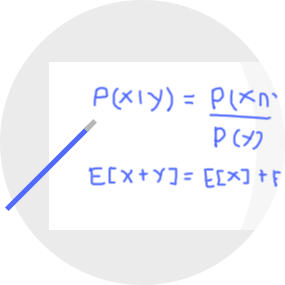 P(x|y) = P(x∩
P(y)
E[x+y] = E[x] +